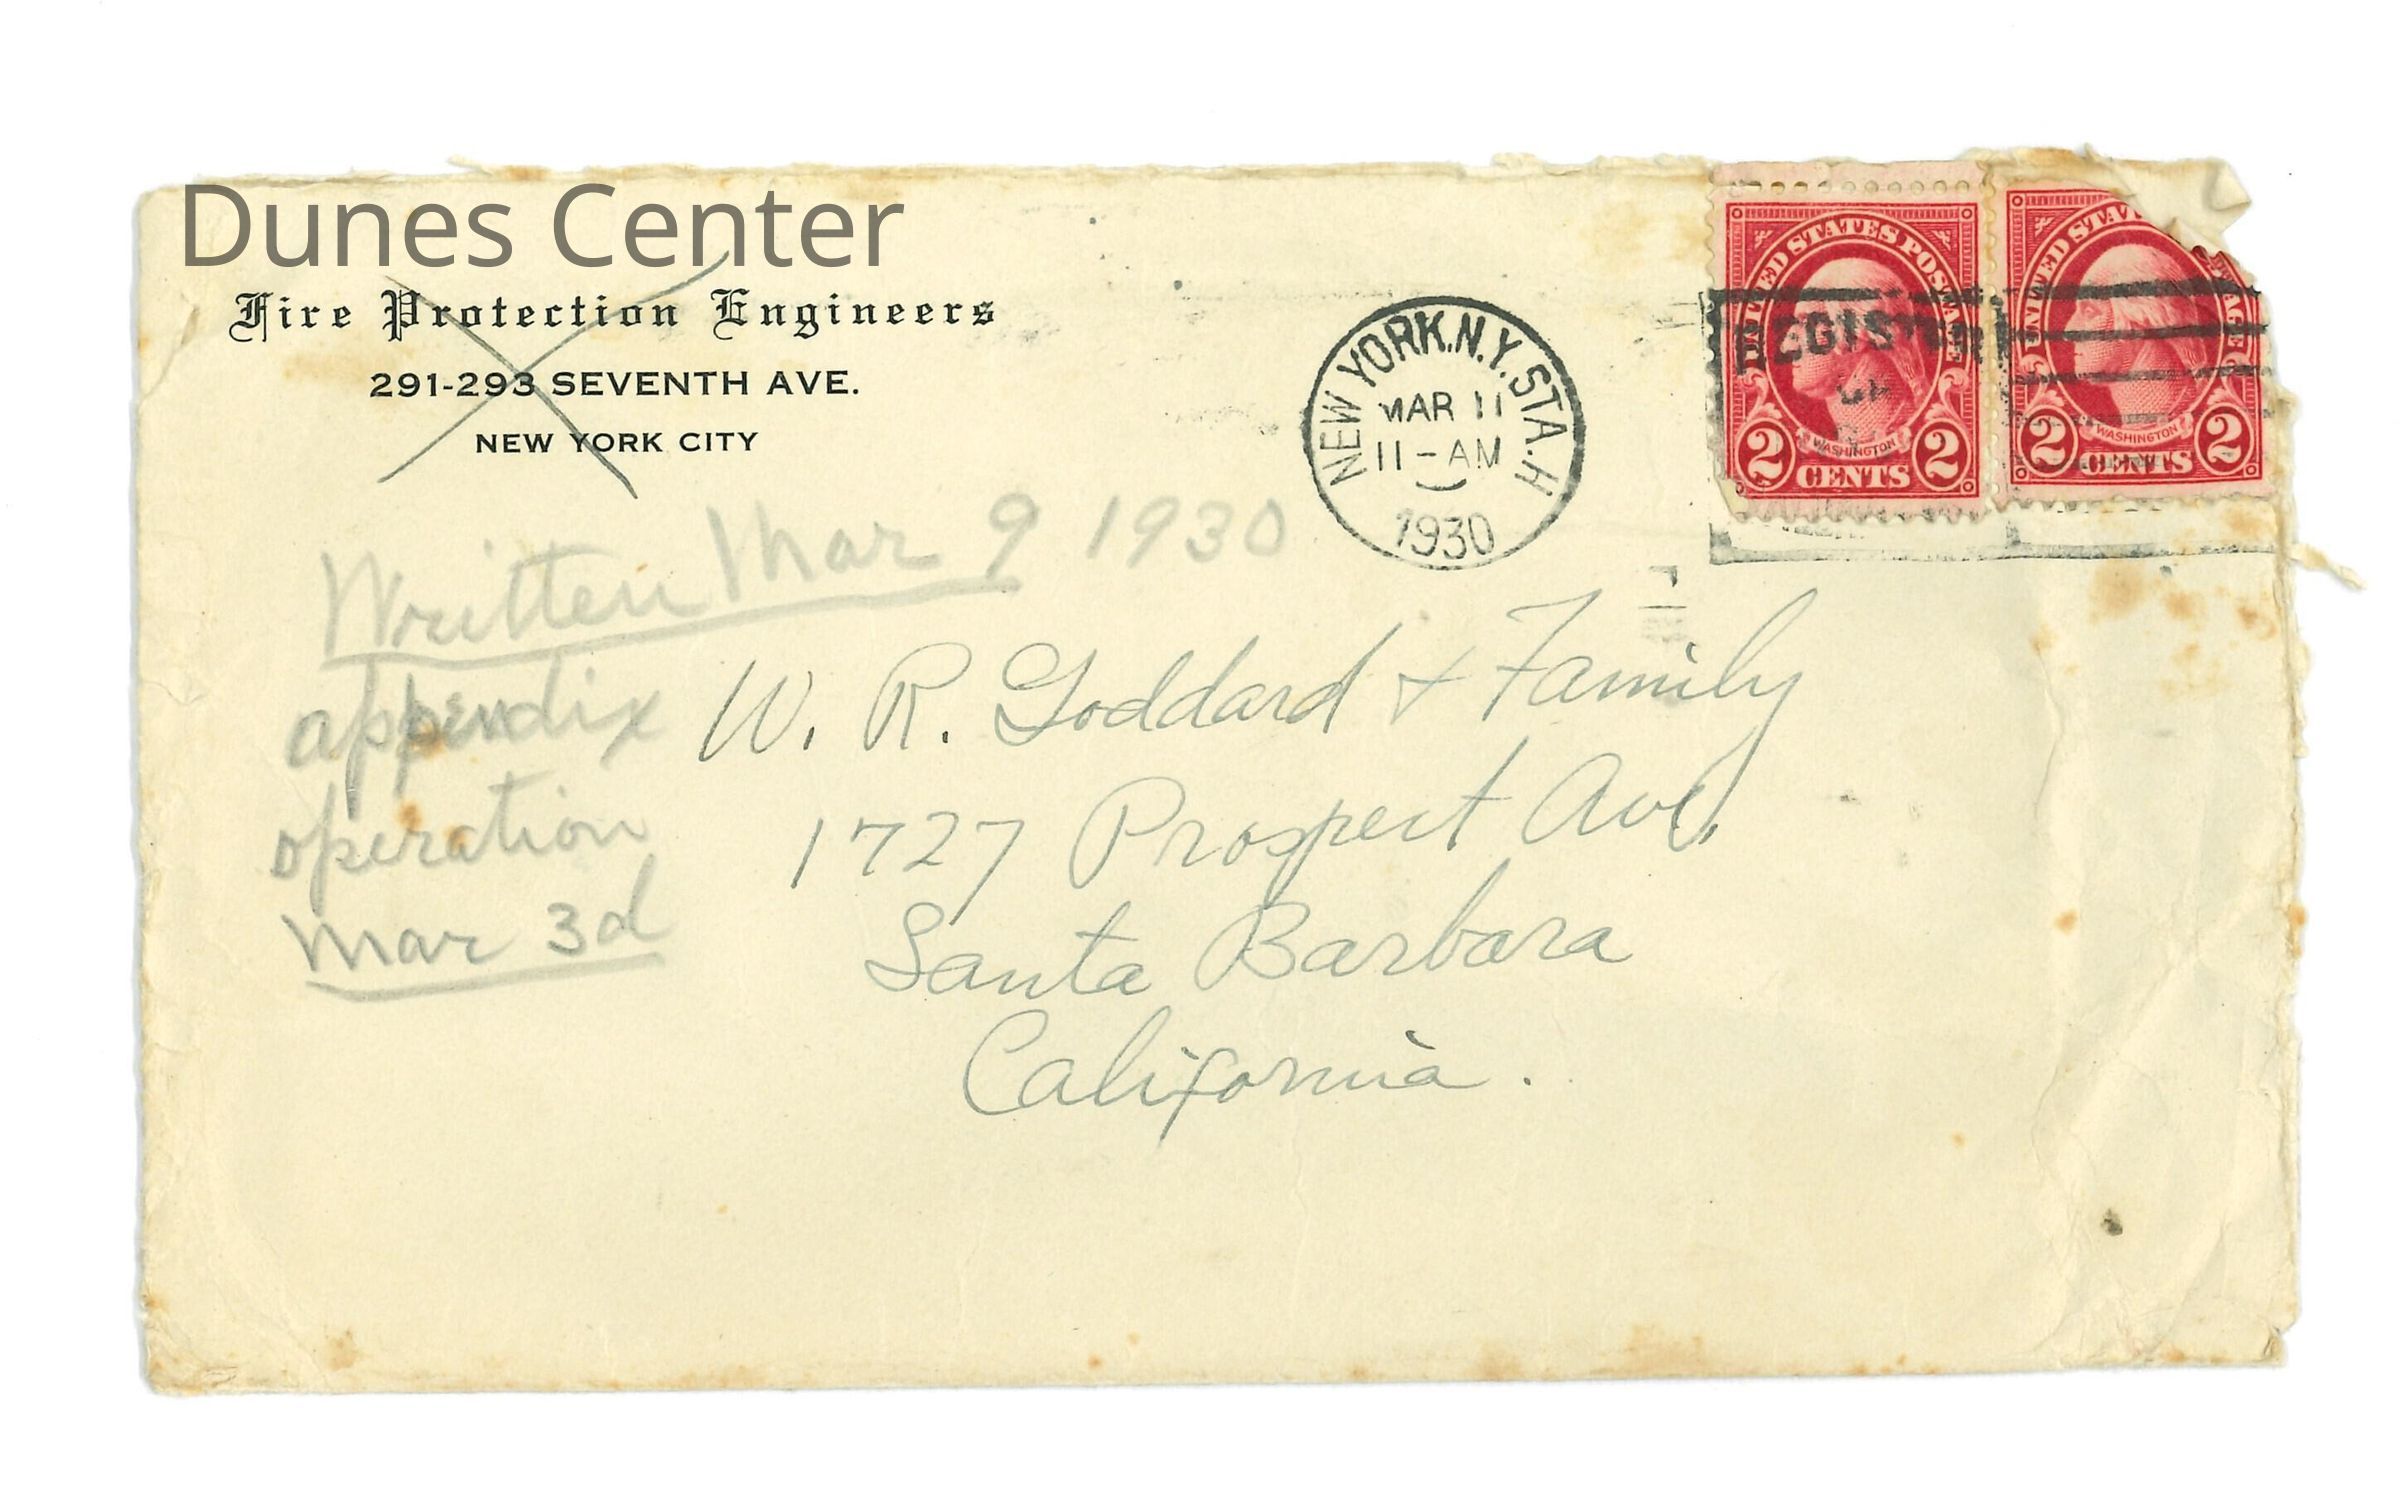 Dunes Center
Fire Protection Engineers
291-293 SEVENTH AVE.
NEW YORK CITY
NEW YORK, N.Y. STA. H
MAR 11
11-AM
1930
UNITED STATES POSTAGE
WASHINGTON
2 CENTS 2
UNITED STATES POSTAGE
WASHINGTON
2 CENTS 2
REGISTER
Written Mar 9 1930
appendix
operation
Mar 3d
W. R. Goddard + Family
1727 Prospect Ave.
Santa Barbara
California.